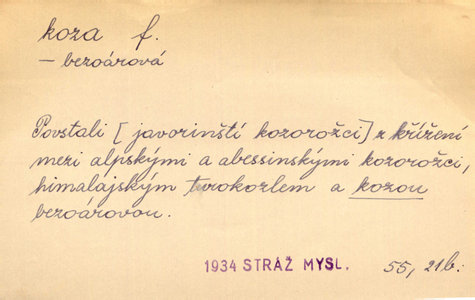 koza f.
– bezoárová
Povstali [javorinští kozorožci] z křížení
mezi alpskými a abessinskými kozorožci,
himalajským turokozlem a kozou
bezoárovou.
1934 STRÁŽ MYSL. 55, 21b.